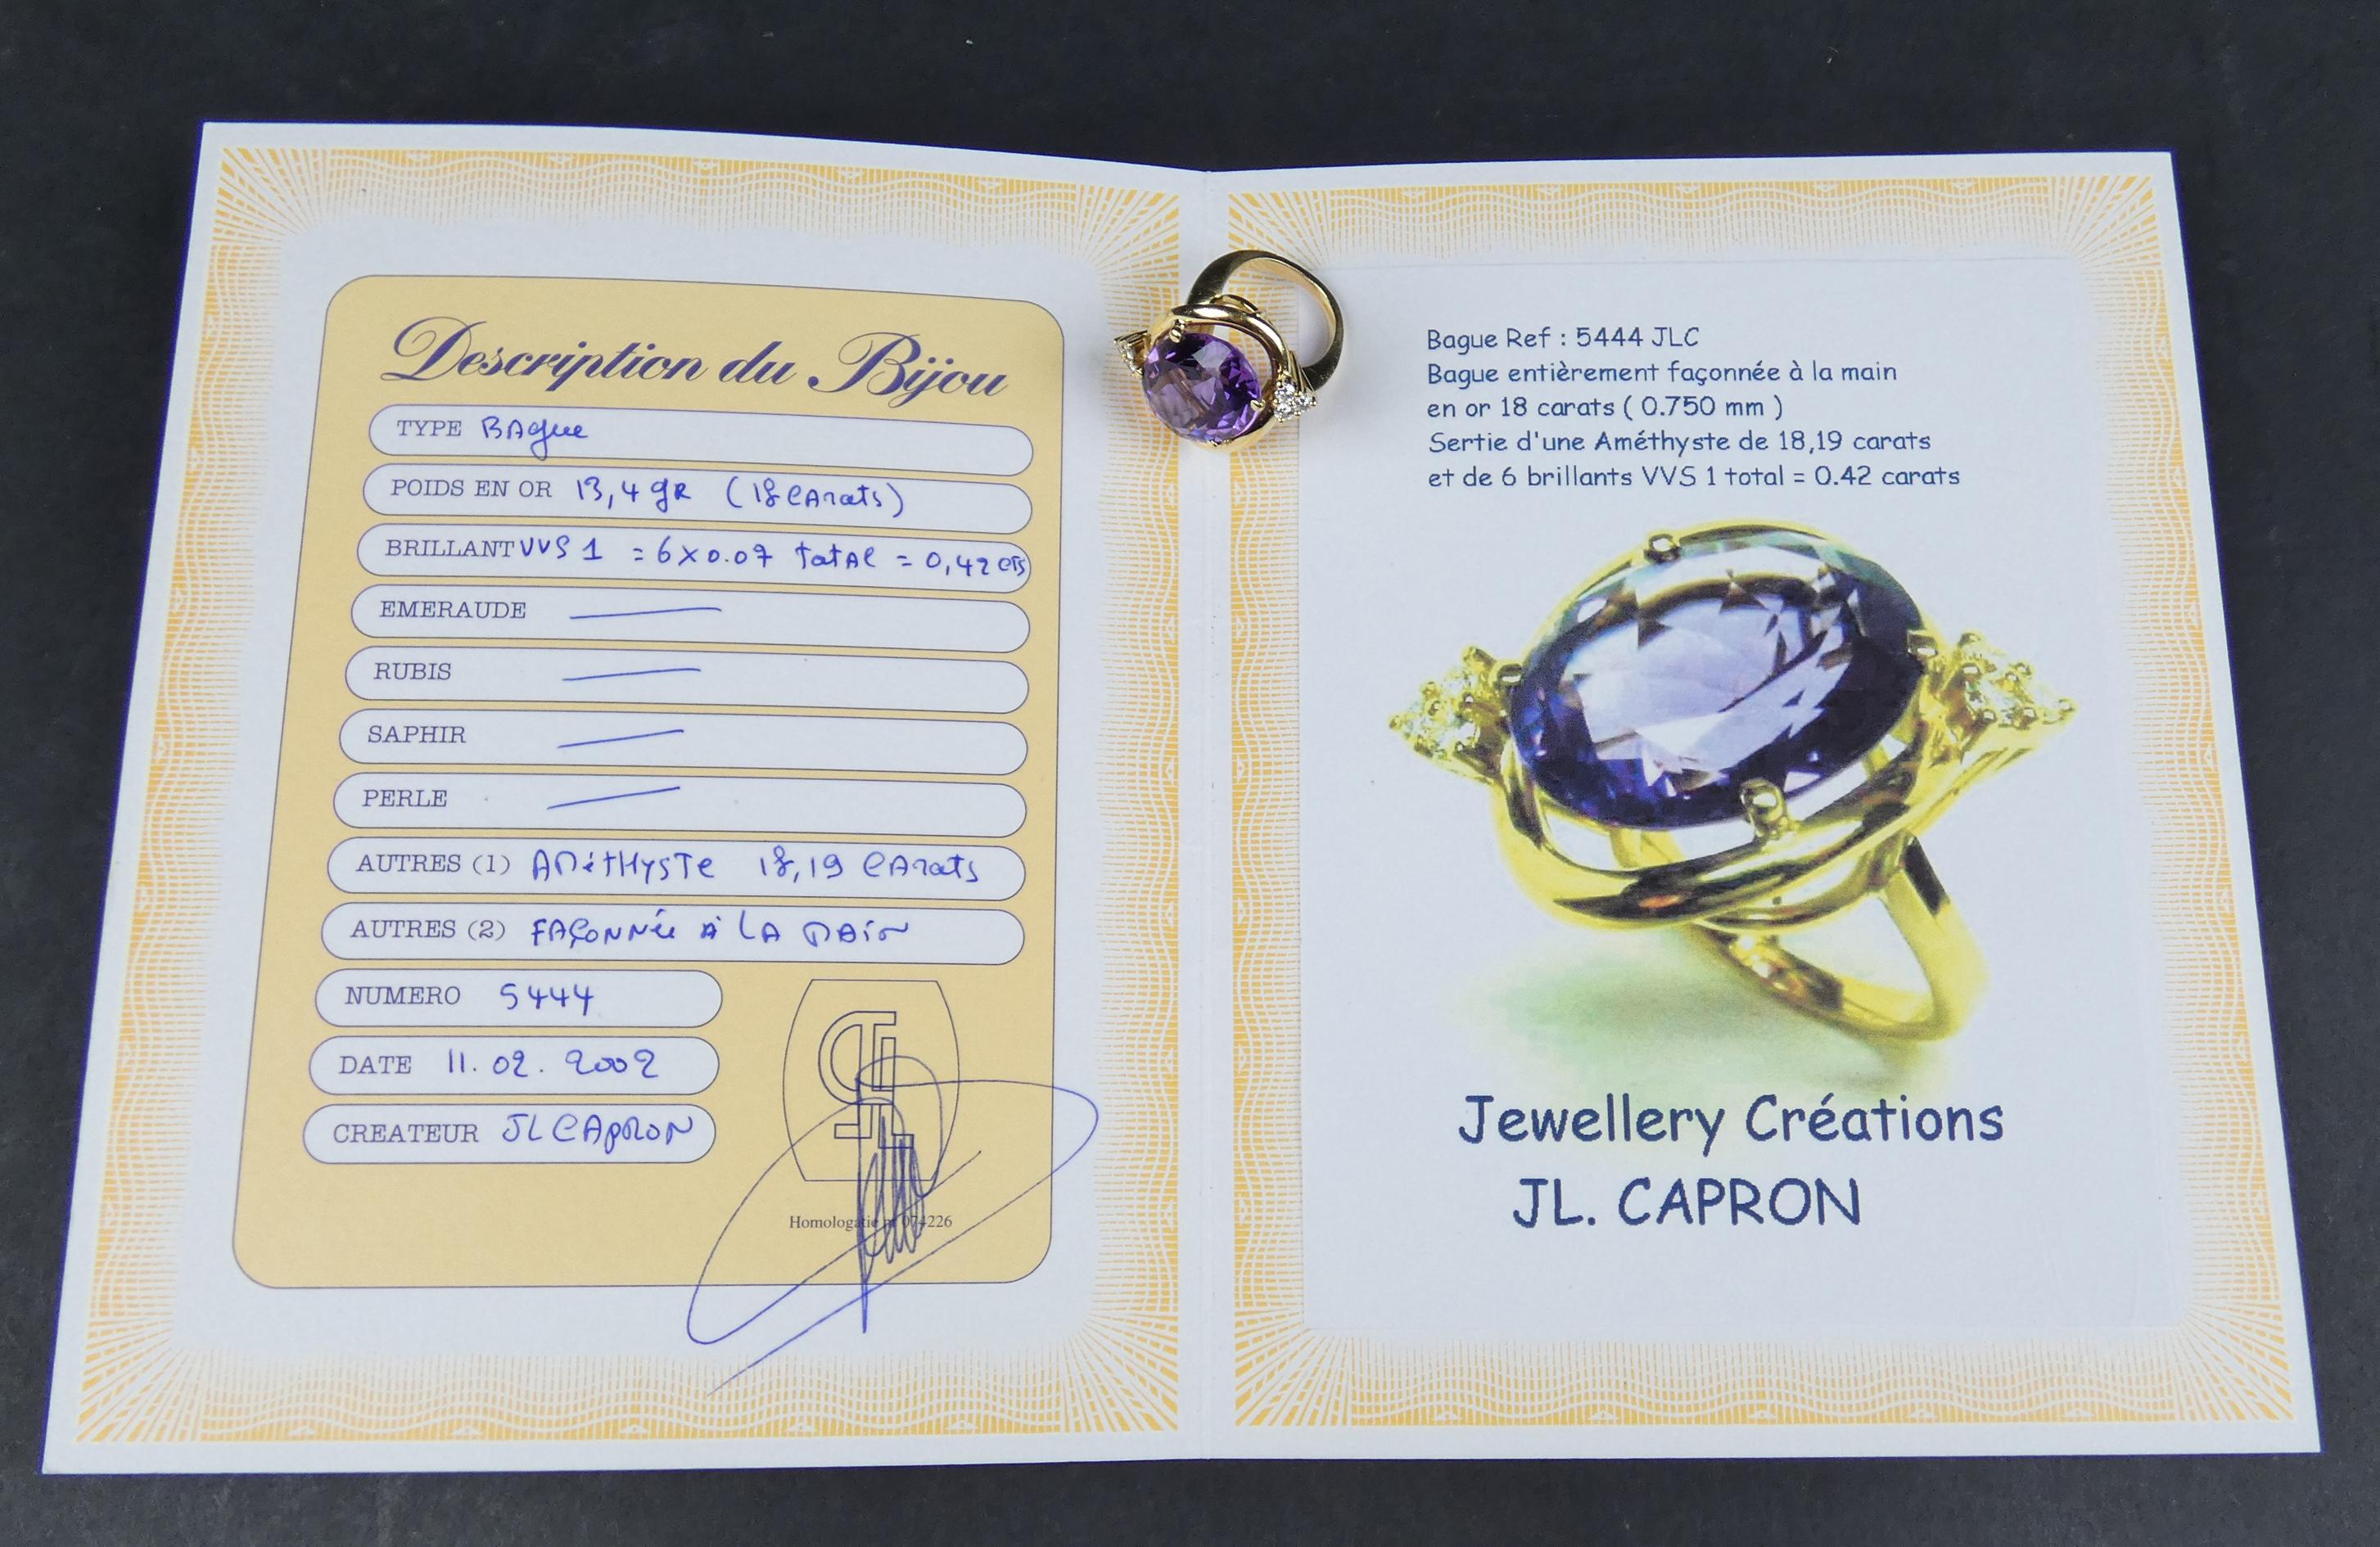 Description du Bijou
TYPE BAgue
POIDS EN OR 13,4 gR (18 CArats)
BRILLANT VVS 1 = 6 x 0.07 totAl = 0,42 cts
EMERAUDE
RUBIS
SAPHIR
PERLE
AUTRES (1) AMéTHySTe 18,19 CArats
AUTRES (2) FAÇoNNée à LA MAiN
NUMERO 5444
DATE 11.02.2002
CREATEUR JLCApRoN
Homologatie nr 074226
Bague Ref : 5444 JLC
Bague entièrement façonnée à la main
en or 18 carats ( 0.750 mm )
Sertie d'une Améthyste de 18,19 carats
et de 6 brillants VVS 1 total = 0.42 carats
Jewellery Créations
JL. CAPRON